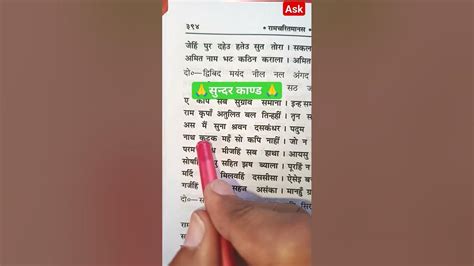 Ask
३९४
* रामचरितमानस *
जेहिं पुर दहेउ हतेउ सुत तोरा । सकल
अमित नाम भट कठिन कराला ।
दो०— द्विबिद मयंद नील नल अंगद
🙏सुन्दर काण्ड 🙏
ए कपि सब सुग्रीव समाना । इन्ह सम
राम कृपाँ अतुलित बल तिन्हहीं । तृन स
अस मैं सुना श्रवन दसकंधर । पदुम
नाथ कटक महँ सो कपि नाहीं । जो न
परम मीजहिं सब हाथा । आयसु
सोषहिं सहित झष ब्याला ।
मर्दि मिलवहिं दससीसा । ऐसेइ
सहज असंका । मानहुँ
दो०—